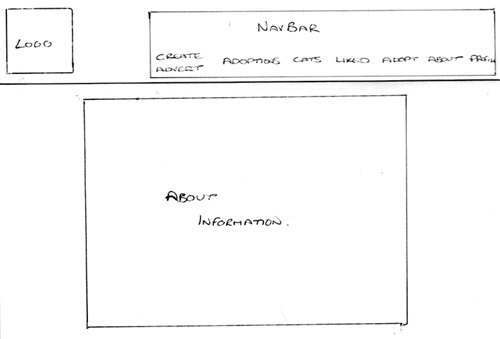 LOGO
NAVBAR
CREATE ADVERT
ADOPTIONS CATS LIKED ADOPT ABOUT
ABOUT
INFORMATION.